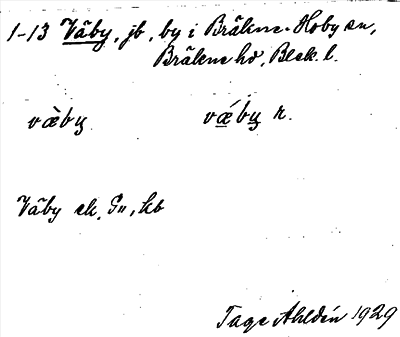 1-13 Väby, jb, by i Bräkne-Hoby sn,
Bräkne hd, Blek. l.
vɑ̀̀by̱ vǽ̱by̱ r.
Väby sk, Gs, kb
Tage Ahldén 1929